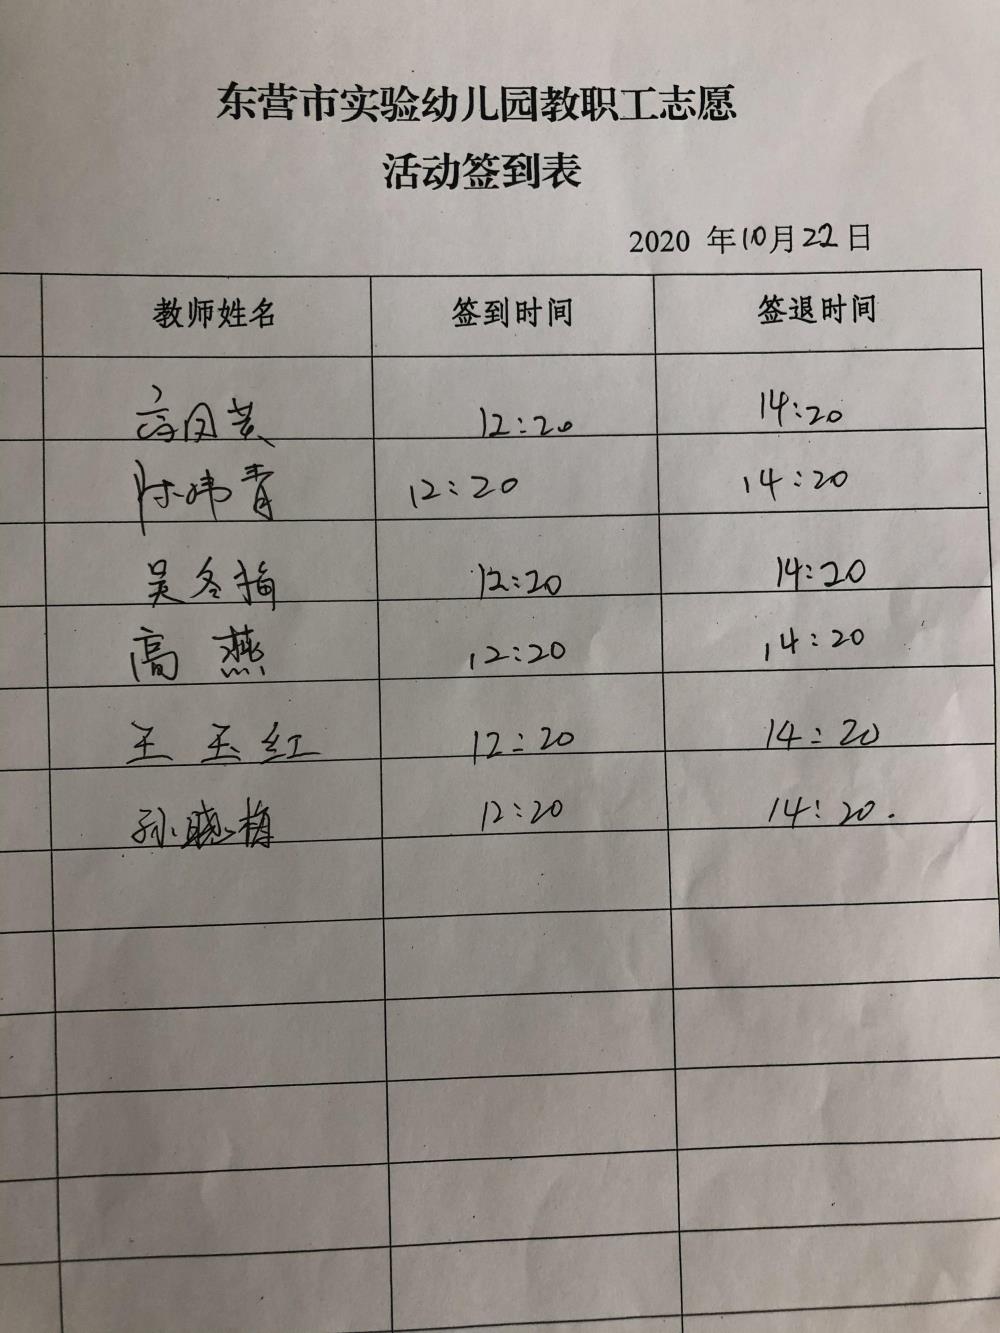 东营市实验幼儿园教职工志愿
活动签到表
2020 年10月22日
教师姓名 签到时间 签退时间
12:20 14:20
陈玮青 12:20 14:20
吴冬梅 12:20 14:20
高燕 12:20 14:20
王玉红 12:20 14:20
孙晓梅 12:20 14:20.